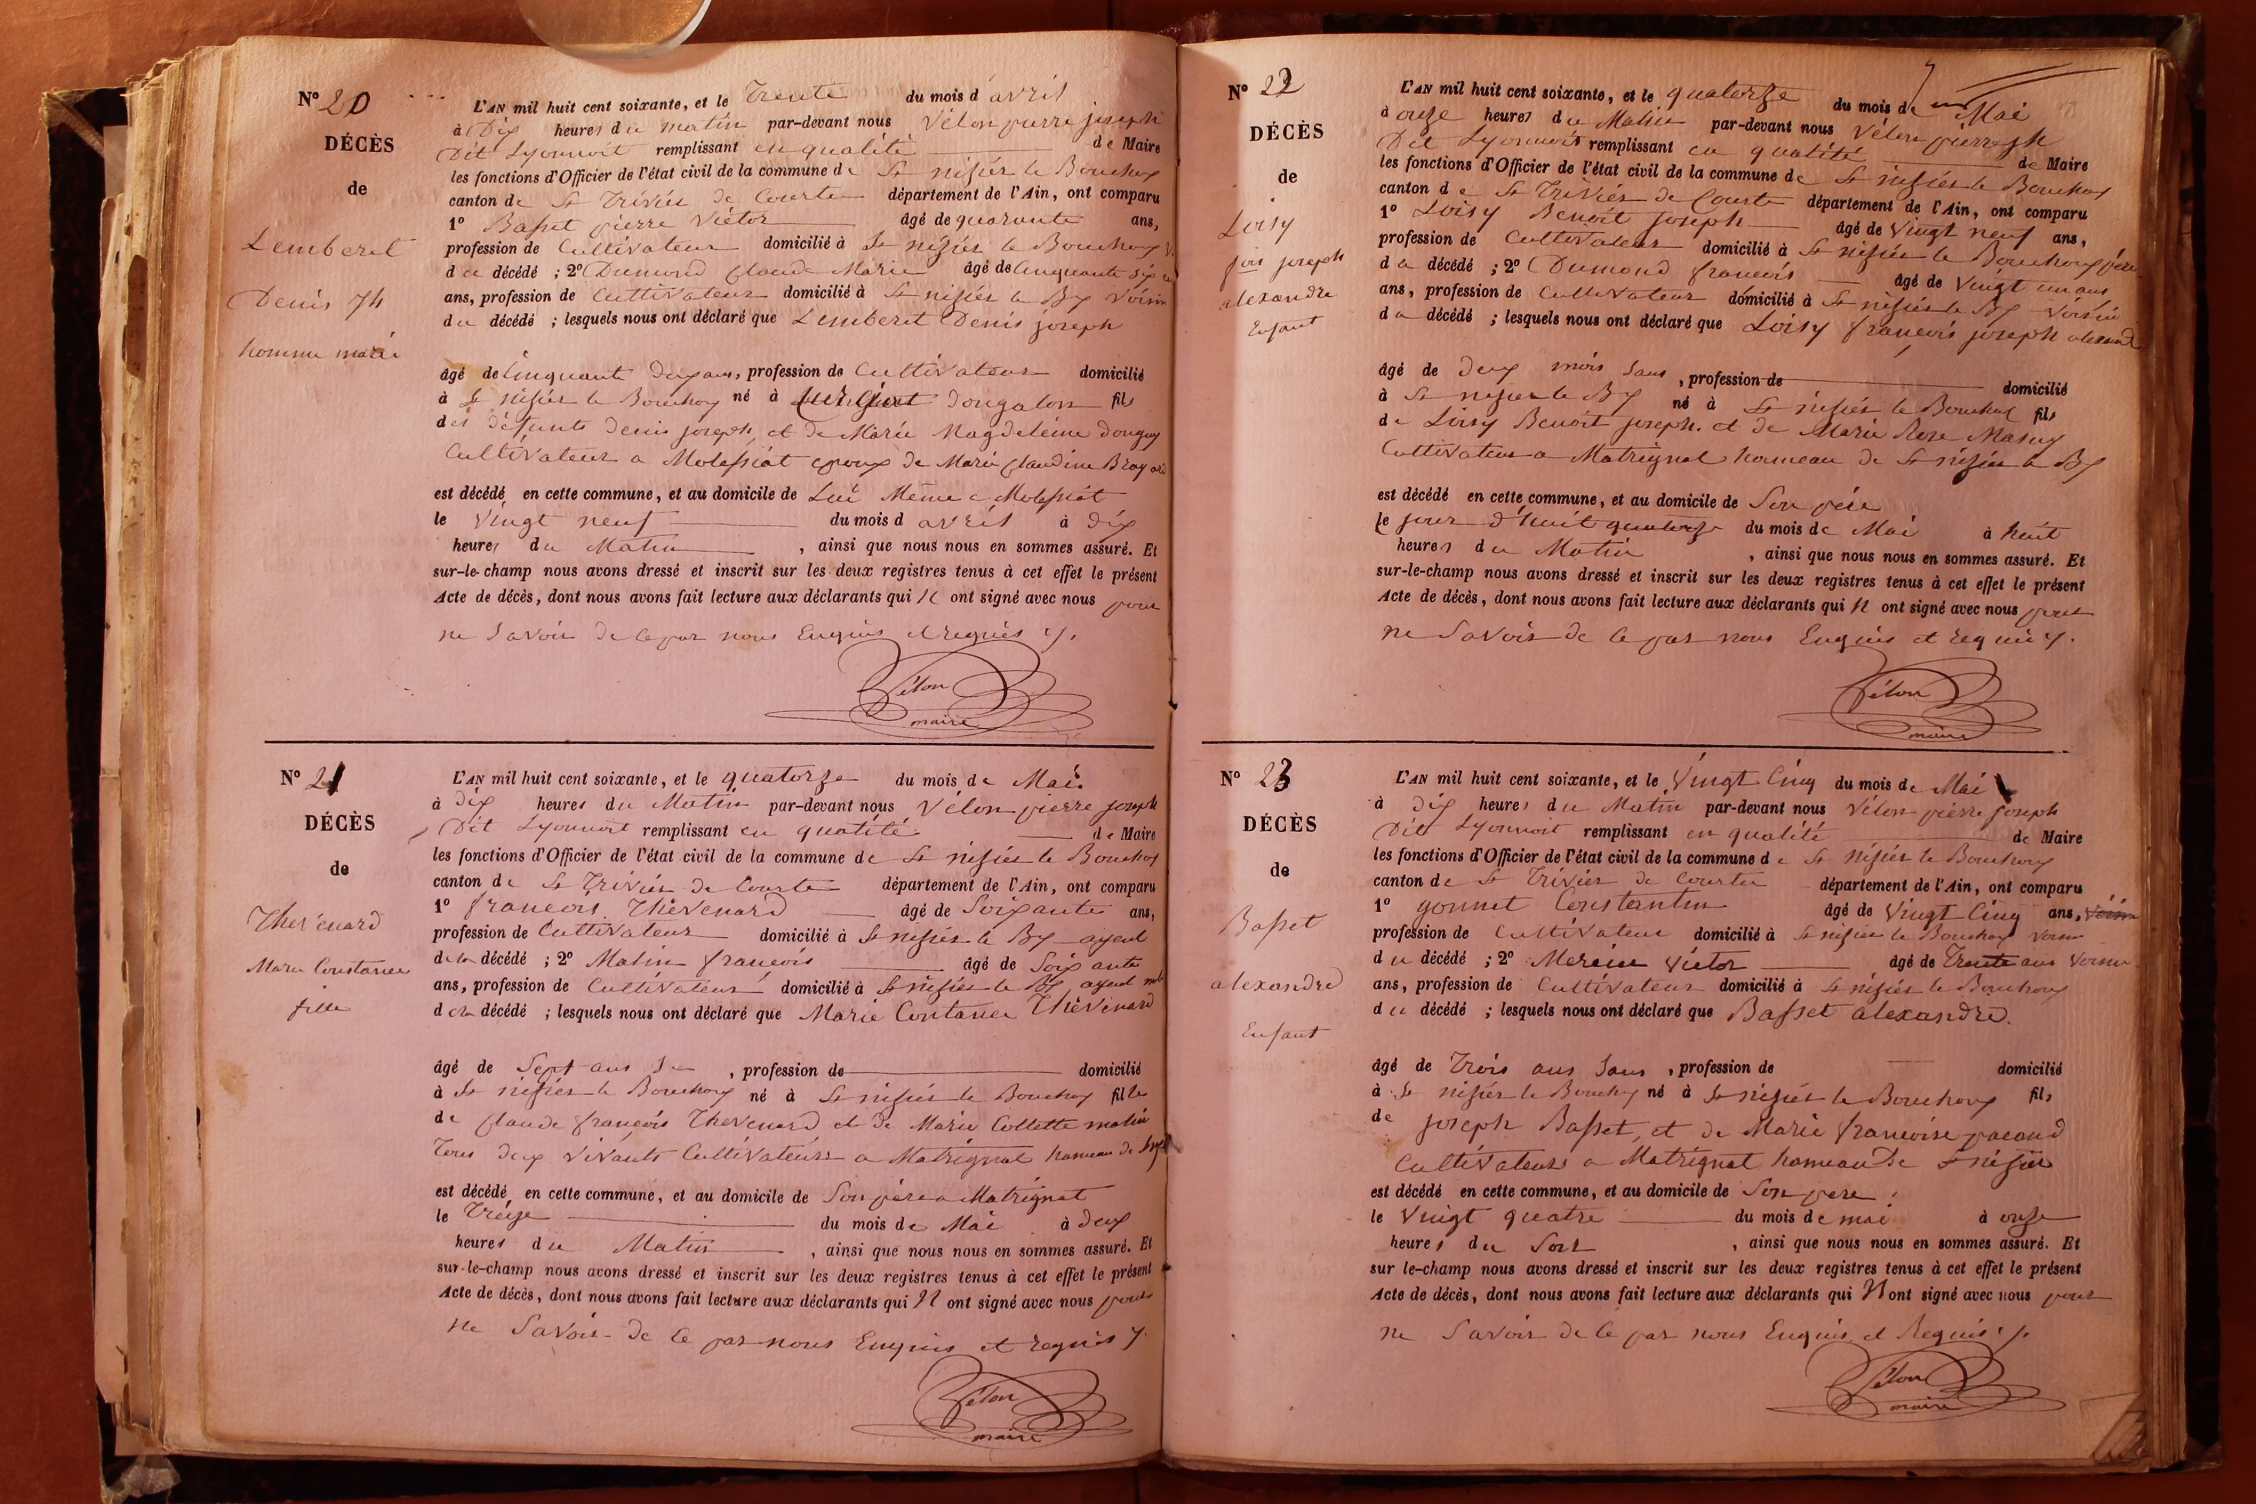 N° 20
DÉCÈS
de
Lemberet
Denis Jh
homme marié
L'AN mil huit cent soixante, et le Trente du mois d avril
à Dix heures du matin par-devant nous Vélon pierre joseph
Dit Lyonnoit remplissant en qualité de Maire
les fonctions d'Officier de l'état civil de la commune de St nisiér le Bouchoy
canton de St Triviér de Courte département de l'Ain, ont comparu
1° Basset pierre Victor âgé de quarante ans,
profession de Cultivateur domicilié à St nisiér le Bouchoy
du décédé ; 2° Dumond Claude Marie âgé de Cinquante six
ans, profession de Cultivateur domicilié à St nisiér le By Voisin
du décédé ; lesquels nous ont déclaré que Lemberet Denis joseph
âgé de Cinquante deux ans, profession de Cultivateur domicilié
à St nisiér le Bouchoy né à dongalon fils
des défunts Denis joseph et de Marie Magdeleine Donguy
Cultivateur a Molessiat epoux de Marie Claudine Broyard
est décédé en cette commune, et au domicile de Lui Même a Molessiat
le Vingt neuf du mois d avril à dix
heures du Matin , ainsi que nous nous en sommes assuré. Et
sur-le-champ nous avons dressé et inscrit sur les deux registres tenus à cet effet le présent
Acte de décès, dont nous avons fait lecture aux déclarants qui N ont signé avec nous pour
ne Savoir de ce par nous Enquis et requis
Vélon
maire
N° 21
DÉCÈS
de
Thevenard
Marie Constance
fille
L'AN mil huit cent soixante, et le quatorze du mois de Mai
à Dix heures du Matin par-devant nous Vélon pierre joseph
Dit Lyonnoit remplissant en qualité de Maire
les fonctions d'Officier de l'état civil de la commune de St nisiér le Bouchoy
canton de St Triviér de Courte département de l'Ain, ont comparu
1° françois Thévenard âgé de Soixante ans,
profession de Cultivateur domicilié à St nisiér le By ayeul
de la décédé ; 2° Matin françois âgé de Soixante
ans, profession de Cultivateur domicilié à St nisiér le By ayeul
de la décédé ; lesquels nous ont déclaré que Marie Contance Thévenard
âgé de Sept ans , profession de domicilié
à St nisiér le Bouchoy né à St nisiér le Bouchoy fille
de Claude françois Thevenard et de Marie Collette matin
Tous deux Vivants Cultivateurs a Matrignat hameau de
est décédé en cette commune, et au domicile de Son père a Matrignat
le Treize du mois de Mai à deux
heures du Matin , ainsi que nous nous en sommes assuré. Et
sur-le-champ nous avons dressé et inscrit sur les deux registres tenus à cet effet le présent
Acte de décès, dont nous avons fait lecture aux déclarants qui N ont signé avec nous pour
ne Savoir de ce par nous Enquis et requis
Vélon
maire
N° 22
DÉCÈS
de
Loisy
fois joseph
alexandre
Enfant
L'AN mil huit cent soixante, et le quatorze du mois de Mai
à onze heures du Matin par-devant nous Vélon pierre jh
Dit Lyonnoit remplissant en qualité de Maire
les fonctions d'Officier de l'état civil de la commune de St nisiér le Bouchoy
canton de St Triviér de Courte département de l'Ain, ont comparu
1° Loisy Benoit joseph âgé de Vingt neuf ans,
profession de Cultivateur domicilié à St nisiér le Bouchoux père
du décédé ; 2° Dumond françois âgé de Vingt un ans
ans, profession de Cultivateur domicilié à St nisiér le By Voisin
du décédé ; lesquels nous ont déclaré que Loisy françois joseph alexandre
âgé de deux mois Sans , profession de domicilié
à St nisier le By né à St nisiér le Bouchoy fils
de Loisy Benoit joseph. et de Marie Rose Masuy
Cultivateur a Matrignat hameau de St nisiér le By
est décédé en cette commune, et au domicile de Son père
le jour d'huit quatorze du mois de Mai à huit
heures du Matin , ainsi que nous nous en sommes assuré. Et
sur-le-champ nous avons dressé et inscrit sur les deux registres tenus à cet effet le présent
Acte de décès, dont nous avons fait lecture aux déclarants qui N ont signé avec nous pour
ne Savoir de ce par nous Enquis et requis
Vélon
maire
N° 23
DÉCÈS
de
Basset
alexandre
Enfant
L'AN mil huit cent soixante, et le Vingt Cinq du mois de Mai
à dix heures du Matin par-devant nous Vélon pierre joseph
Dit Lyonnoit remplissant en qualité de Maire
les fonctions d'Officier de l'état civil de la commune de St Nisiér le Bouchoux
canton de St Triviér de Courte département de l'Ain, ont comparu
1° gonnet Constantin âgé de Vingt Cinq ans, Voisin
profession de Cultivateur domicilié à St nisiér le Bouchoy voisin
du décédé ; 2° Mercier Victor âgé de Trente ans Voisin
ans, profession de Cultivateur domicilié à St nisiér le Bouchoux
du décédé ; lesquels nous ont déclaré que Basset alexandre.
âgé de Trois ans Sans , profession de domicilié
à St nisiér le Bouchoy né à St nisiér le Bouchoux fils
de joseph Basset, et de Marie francoise pacaud
Cultivateurs a Matrignat hameau de St nisiér
est décédé en cette commune, et au domicile de Son pere
le Vingt quatre du mois de mai à onze
heures du Soir , ainsi que nous nous en sommes assuré. Et
sur le-champ nous avons dressé et inscrit sur les deux registres tenus à cet effet le présent
Acte de décès, dont nous avons fait lecture aux déclarants qui N ont signé avec nous pour
ne Savoir de ce par nous Enquis et Requis
Vélon
maire